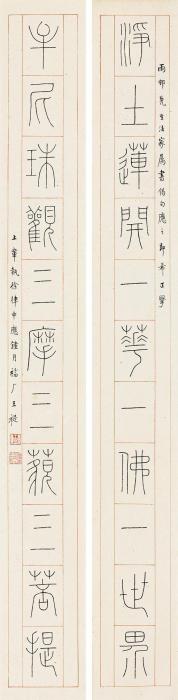 雨邨先生法家屬書句應之即希正擘
淨土蓮開一華一佛一世界
牟尼珠觀三摩三藐三菩提
上章執徐律中應鐘月福厂王禔